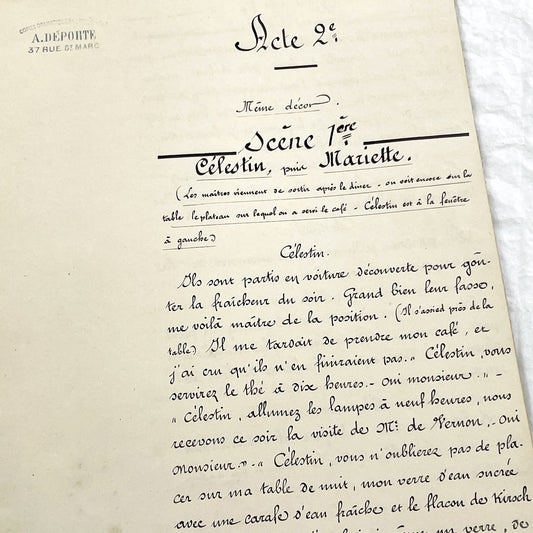 COPIES DRAMATIQUES
A. DÉPORTE
37 RUE ST MARC
Acte 2e.
Même décor.
Scène 1ère
Célestin, puis Mariette.
(Les maîtres viennent de sortir après le dîner - on voit encore sur la
table le plateau sur lequel on a servi le café - Célestin est à la fenêtre
à gauche)
Célestin.
Ils sont partis en voiture découverte pour goû-
ter la fraîcheur du soir. Grand bien leur fasse,
me voilà maître de la position. (Il s'assied près de la
table) Il me tardait de prendre mon café, et
j'ai cru qu'ils n'en finiraient pas. "Célestin, vous
servirez le thé à dix heures. - Oui monsieur." -
"Célestin, allumez les lampes à neuf heures, nous
recevons ce soir la visite de Mr. de Vernon. - Oui
Monsieur." - "Célestin, vous n'oublierez pas de pla-
cer sur ma table de nuit, mon verre d'eau sucrée
avec une carafe d'eau fraîche et le flacon de Kirsch
un verre, de